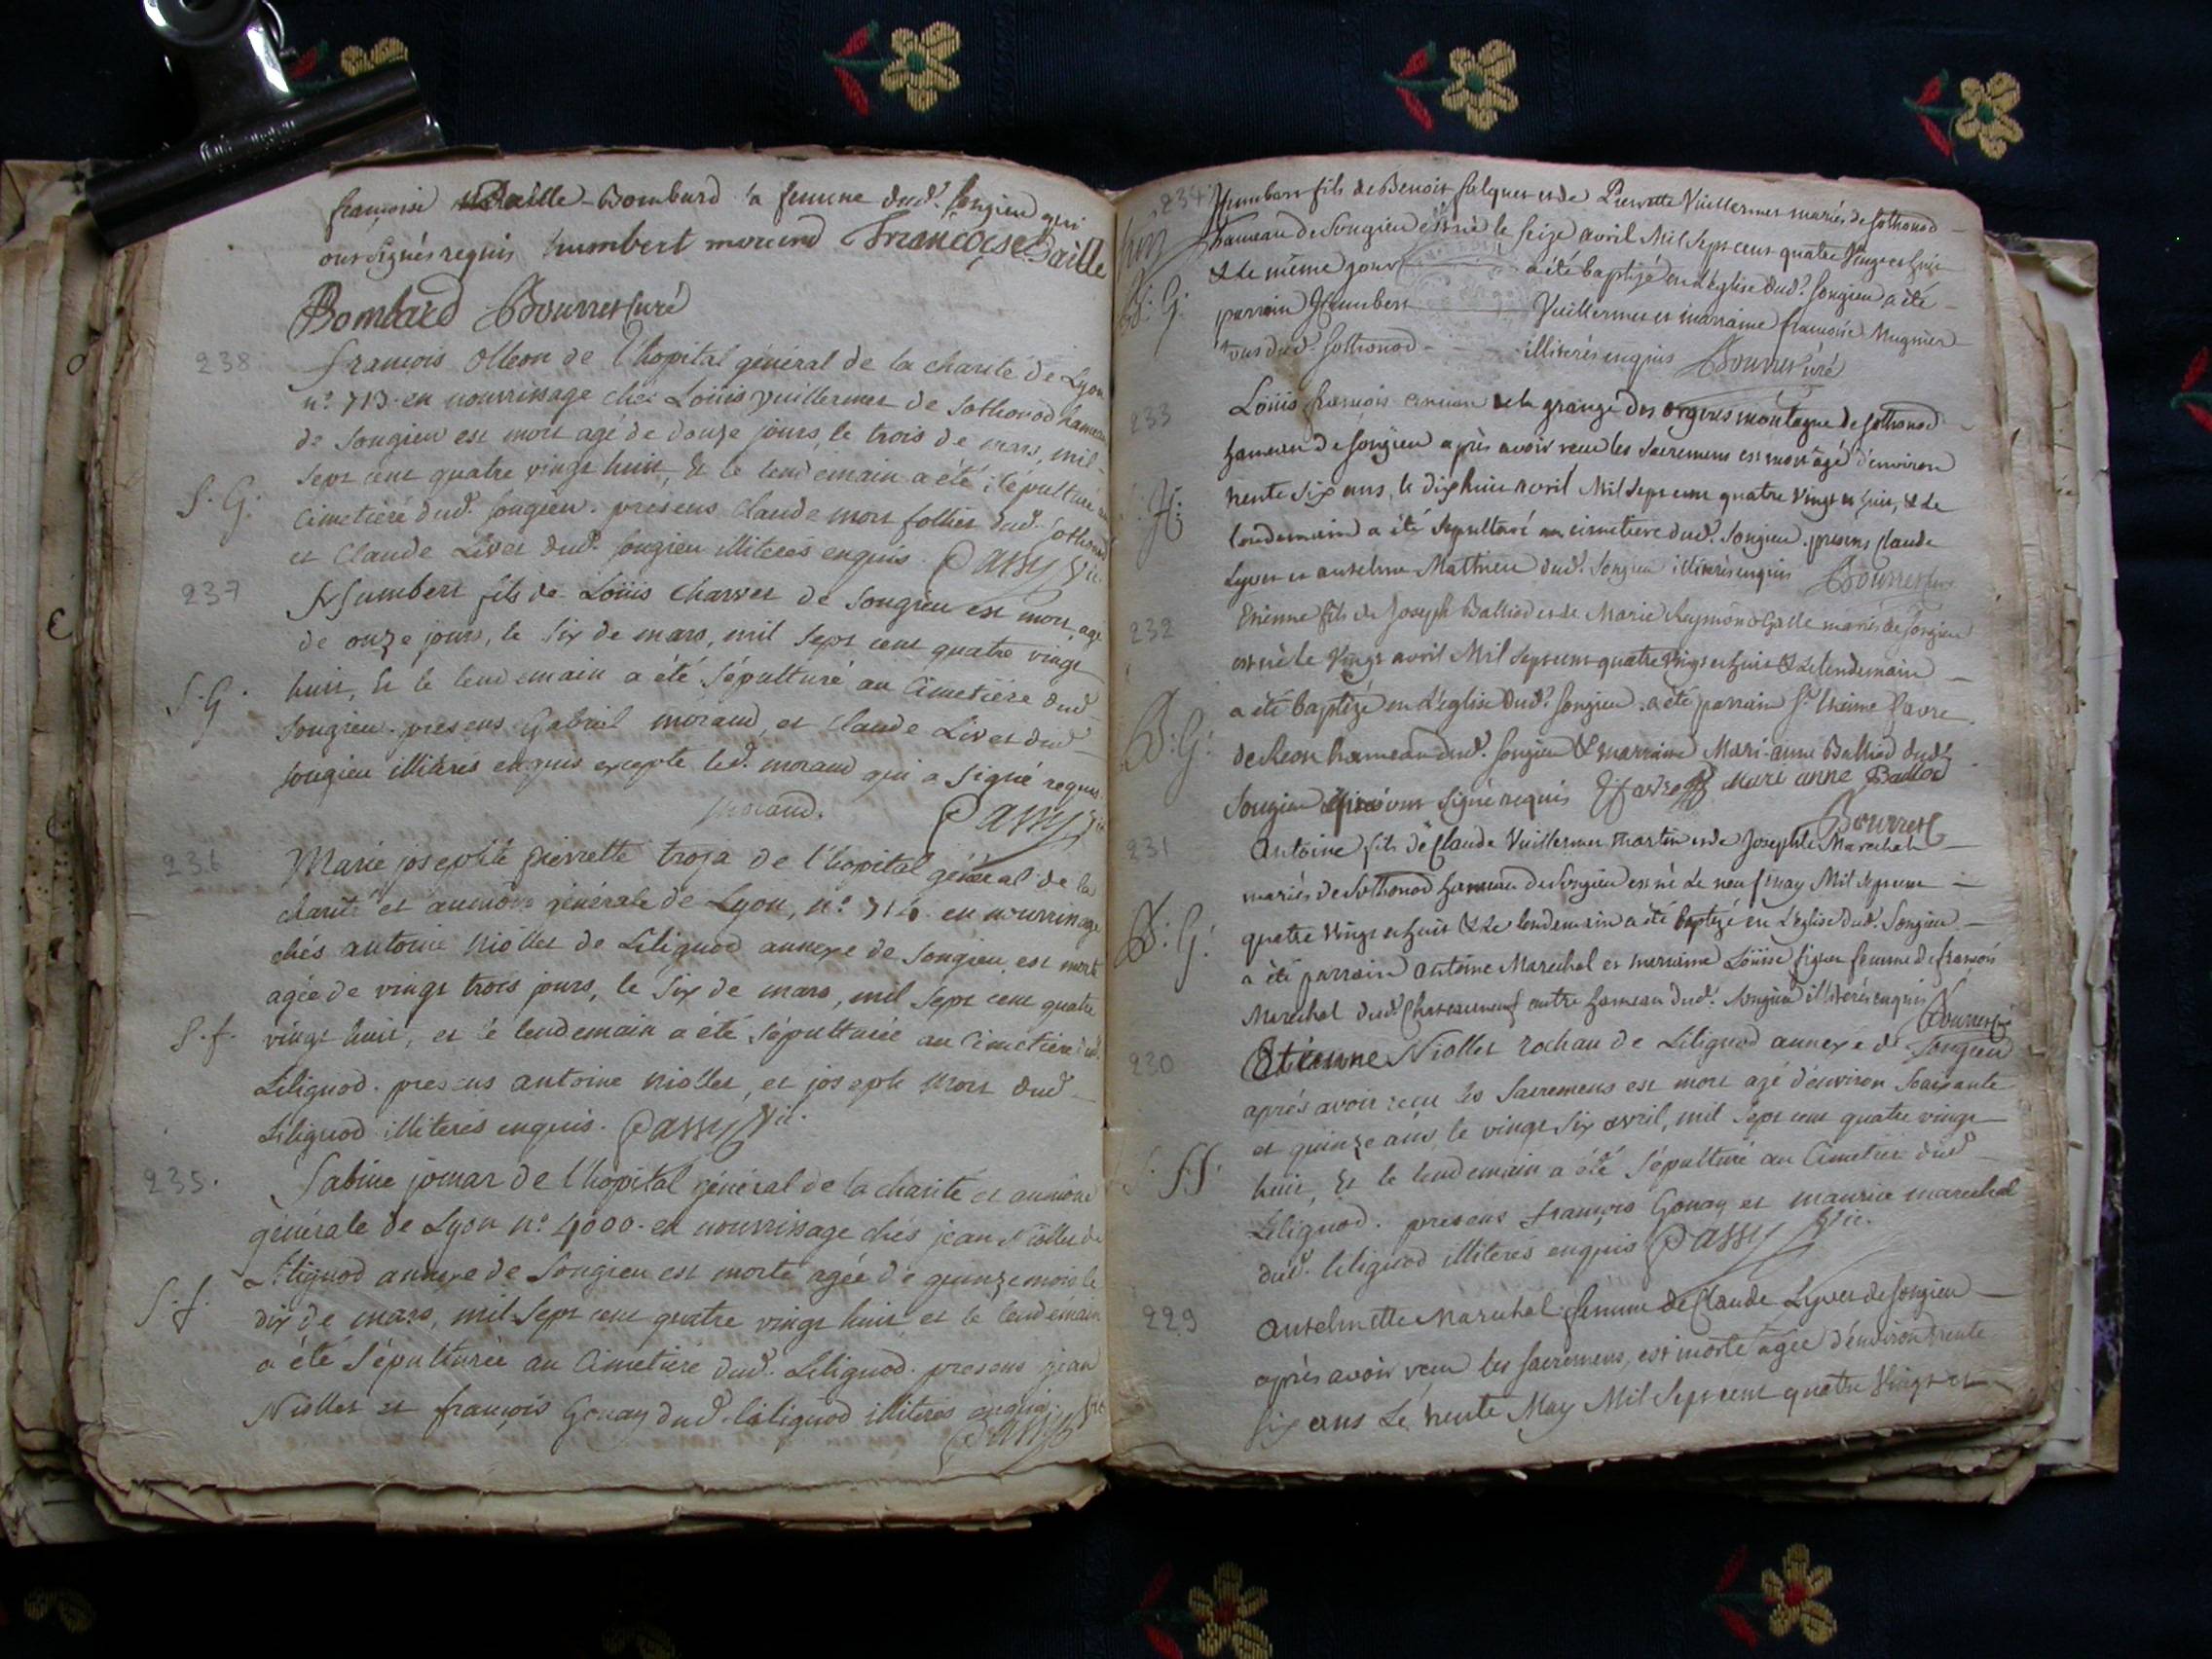 françoise Baille-Bombard sa femme dud. Songieu qui
ont signés requis humbert morand Françoise Baille
Bombard Bourret curé
238
françois Olleon de l'hopital général de la charité de Lyon
n.º 713. en nourrissage chez Loüis vuillermet de Sothonod hameau
de Songieu est mort agé de douze jours, le trois de mars, mil
sept cent quatre vingt huit, & le lendemain a été sépulturé au
S. G. Cimetière dud. Songieu. présens Claude mort follies dud. Sothonod
et Claude Livet dud. Songieu illiterés enquis. Passy Vic.
237
Humbert fils de Loüis Charvet de Songieu est mort, agé
de onze jours, le six de mars, mil sept cent quatre vingt
S. G. huit, & le lendemain a été sépulturé au Cimetière dud.
Songieu. présens Gabriel morand, et Claude Livet dud.
Songieu illiterés enquis excepté led. morand qui a signé requis
morand. Passy Vic.
236
Marie josephte pierrette troja de l'hopital général de la
charité et aumône générale de Lyon, n.º en nourrissage
chés antoine Niollet de Lilignod annexe de Songieu est morte
agée de vingt trois jours, le six de mars, mil sept cent quatre
S. f. vingt huit, et le lendemain a été sépulturée au Cimetière dud.
Lilignod. présens antoine Niollet, et joseph Mort dud.
Lilignod illiterés enquis. Passy Vic.
235.
Sabine jomar de l'hopital général de la charité et aumône
générale de Lyon n.º 4000. en nourrissage chés jean Niollet de
S. f. Lilignod annexe de Songieu est morte agée de quinze mois le
dix de mars, mil sept cent quatre vingt huit et le lendemain
a été sépulturée au Cimetière dud. Lilignod. présens jean
Niollet et françois Gonay dud. Lilignod illiterés enquis.
Passy Vic
234
Humbert fils de Benoit falquet et de Pierrette Vuillermet mariés de Sothonod
hameau de Songieu est né le seize avril Mil sept cent quatre Vingt et huit
& le même jour a été baptizé en l'église dud. Songieu a été
B. G. parrain Humbert Vuillermet et marraine françoise Mugnier
tous dud. Sothonod illiterés enquis Bourret curé
233
Loüis françois de la grange des orgeres montagne de Sothonod
hameau de Songieu après avoir recu les sacremens est mort agé d'environ
trente six ans, le dix huit avril Mil sept cent quatre Vingt et huit, & le
lendemain a été sépulturé au cimetiere dud. Songieu. présens Claude
Lyvet et anselme Mathieu dud. Songieu illiterés enquis Bourret curé
232
Etienne fils de Joseph Balliod et de Marie Reymond Galle mariés de Songieu
est né le Vingt avril Mil sept cent quatre Vingt et huit & le lendemain
a été baptizé en l'église dud. Songieu. a été parrain S.r Favre
B. G. hameau dud. Songieu & marraine Mari-anne Balliod dud.
Songieu qui ont signé requis Favre Mari anne Balliod
Bourret
231
Antoine fils de Claude Vuillermet Martin et de Josephte Marechal
mariés de Sothonod hameau de Songieu est né le neuf may Mil sept cent
B. G. quatre Vingt et huit & le lendemain a été baptizé en l'église dud. Songieu
a été parrain antoine Marechal et marraine Loüise femme de françois
Marechal dud. Chateauneuf autre hameau dud. Songieu illiterés enquis
Bourret curé
230
Etienne Niollet rochau de Lilignod annexe de Songieu
après avoir reçu les Sacremens est mort agé d'environ soixante
et quinze ans le vingt six avril, mil sept cent quatre vingt
huit, & le lendemain a été sépulturé au Cimetière dud.
Lilignod. présens françois Gonay et maurice marechal
dud. Lilignod illiterés enquis Passy Vic.
229
Anselmette Marechal femme de Claude Lyvet de Songieu
après avoir reçu les sacremens, est morte agée d'environ trente
six ans Le trente May Mil sept cent quatre Vingt et